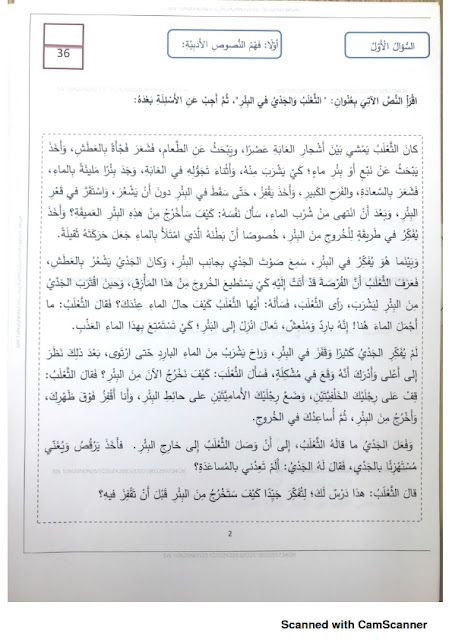 السُّؤالُ الْأَوَّلُ
أوّلًا: فَهْمُ النُّصوصِ الأَدَبِيَّةِ:
36
اقْرَأِ النَّصَّ الآتِيَ بِعُنْوانِ: " الثَّعْلَبُ وَالجَدْيُ في البِئْرِ"، ثُمَّ أَجِبْ عَنِ الأَسْئِلَةِ بَعْدَهُ:
كانَ الثَّعْلَبُ يَمْشي بَيْنَ أَشْجارِ الغابَةِ عَصْرًا، ويَبْحَثُ عَنِ الطَّعامِ، فَشَعَرَ فَجْأَةً بِالعَطَشِ، وَأَخَذَ
يَبْحَثُ عَنْ نَبْعٍ أَوْ بِئْرِ ماءٍ؛ كَيْ يَشْرَبَ مِنْهُ، وَأَثْناءَ تَجَوُّلِهِ في الغابَةِ، وَجَدَ بِئْرًا مَليئَةً بِالماءِ،
فَشَعَرَ بِالسَّعادَةِ، وَالفَرَحِ الكَبيرِ، وَأَخَذَ يَقْفِزُ، حَتّى سَقَطَ في البِئْرِ دونَ أَنْ يَشْعُرَ، وَاسْتَقَرَّ في قَعْرِ
البِئْرِ، وَبَعْدَ أَنْ انْتَهى مِنْ شُرْبِ الماءِ، سَأَلَ نَفْسَهُ: كَيْفَ سَأَخْرُجُ مِنْ هذِهِ البِئْرِ العَميقَةِ؟ وَأَخَذَ
يُفَكِّرُ في طَريقَةٍ لِلْخُروجِ مِنَ البِئْرِ، خُصوصًا أَنَّ بَطْنَهُ الَّذي امْتَلَأَ بِالماءِ جَعَلَ حَرَكَتَهُ ثَقيلَةً.
وَبَيْنَما هُوَ يُفَكِّرُ في البِئْرِ، سَمِعَ صَوْتَ الجَدْيِ بِجانِبِ البِئْرِ، وَكانَ الجَدْيُ يَشْعُرُ بِالعَطَشِ،
فَعَرَفَ الثَّعْلَبُ أَنَّ الفُرْصَةَ قَدْ أَتَتْ إِلَيْهِ كَيْ يَسْتَطيعَ الخُروجَ مِنْ هذا المَأْزَقِ، وَحينَ اقْتَرَبَ الجَدْيُ
مِنَ البِئْرِ لِيَشْرَبَ، رَأى الثَّعْلَبَ، فَسَأَلَهُ: أَيُّها الثَّعْلَبُ كَيْفَ حالُ الماءِ عِنْدَكَ؟ فَقالَ الثَّعْلَبُ: ما
أَجْمَلَ الماءَ هُنا! إِنَّهُ بارِدٌ وَمُنْعِشٌ، تَعالَ انْزِلْ إِلى البِئْرِ؛ كَيْ تَسْتَمْتِعَ بِهذا الماءِ العَذْبِ.
لَمْ يُفَكِّرِ الجَدْيُ كَثيرًا وَقَفَزَ في البِئْرِ، وَراحَ يَشْرَبُ مِنَ الماءِ البارِدِ حَتّى ارْتَوى، بَعْدَ ذلِكَ نَظَرَ
إِلى أَعْلى وَأَدْرَكَ أَنَّهُ وَقَعَ في مُشْكِلَةٍ، فَسَأَلَ الثَّعْلَبَ: كَيْفَ نَخْرُجُ الآنَ مِنَ البِئْرِ؟ فَقالَ الثَّعْلَبُ:
قِفْ عَلى رِجْلَيْكَ الخَلْفِيَّتَيْنِ، وَضَعْ رِجْلَيْكَ الأَمامِيَّتَيْنِ عَلى حائِطِ البِئْرِ، وَأَنا أَقْفِزُ فَوْقَ ظَهْرِكَ،
وَأَخْرُجُ مِنَ البِئْرِ، ثُمَّ أُساعِدُكَ في الخُروجِ.
وَفَعَلَ الجَدْيُ ما قالَهُ الثَّعْلَبُ، إِلى أَنْ وَصَلَ الثَّعْلَبُ إِلى خارِجِ البِئْرِ. فَأَخَذَ يَرْقُصُ وَيُغَنّي
مُسْتَهْزِئًا بِالجَدْيِ، فَقالَ لَهُ الجَدْيُ: أَلَمْ تَعِدْني بِالمُساعَدَةِ؟
قالَ الثَّعْلَبُ: هذا دَرْسٌ لَكَ؛ لِتُفَكِّرَ جَيِّدًا كَيْفَ سَتَخْرُجُ مِنَ البِئْرِ قَبْلَ أَنْ تَقْفِزَ فيهِ؟
2
Scanned with CamScanner